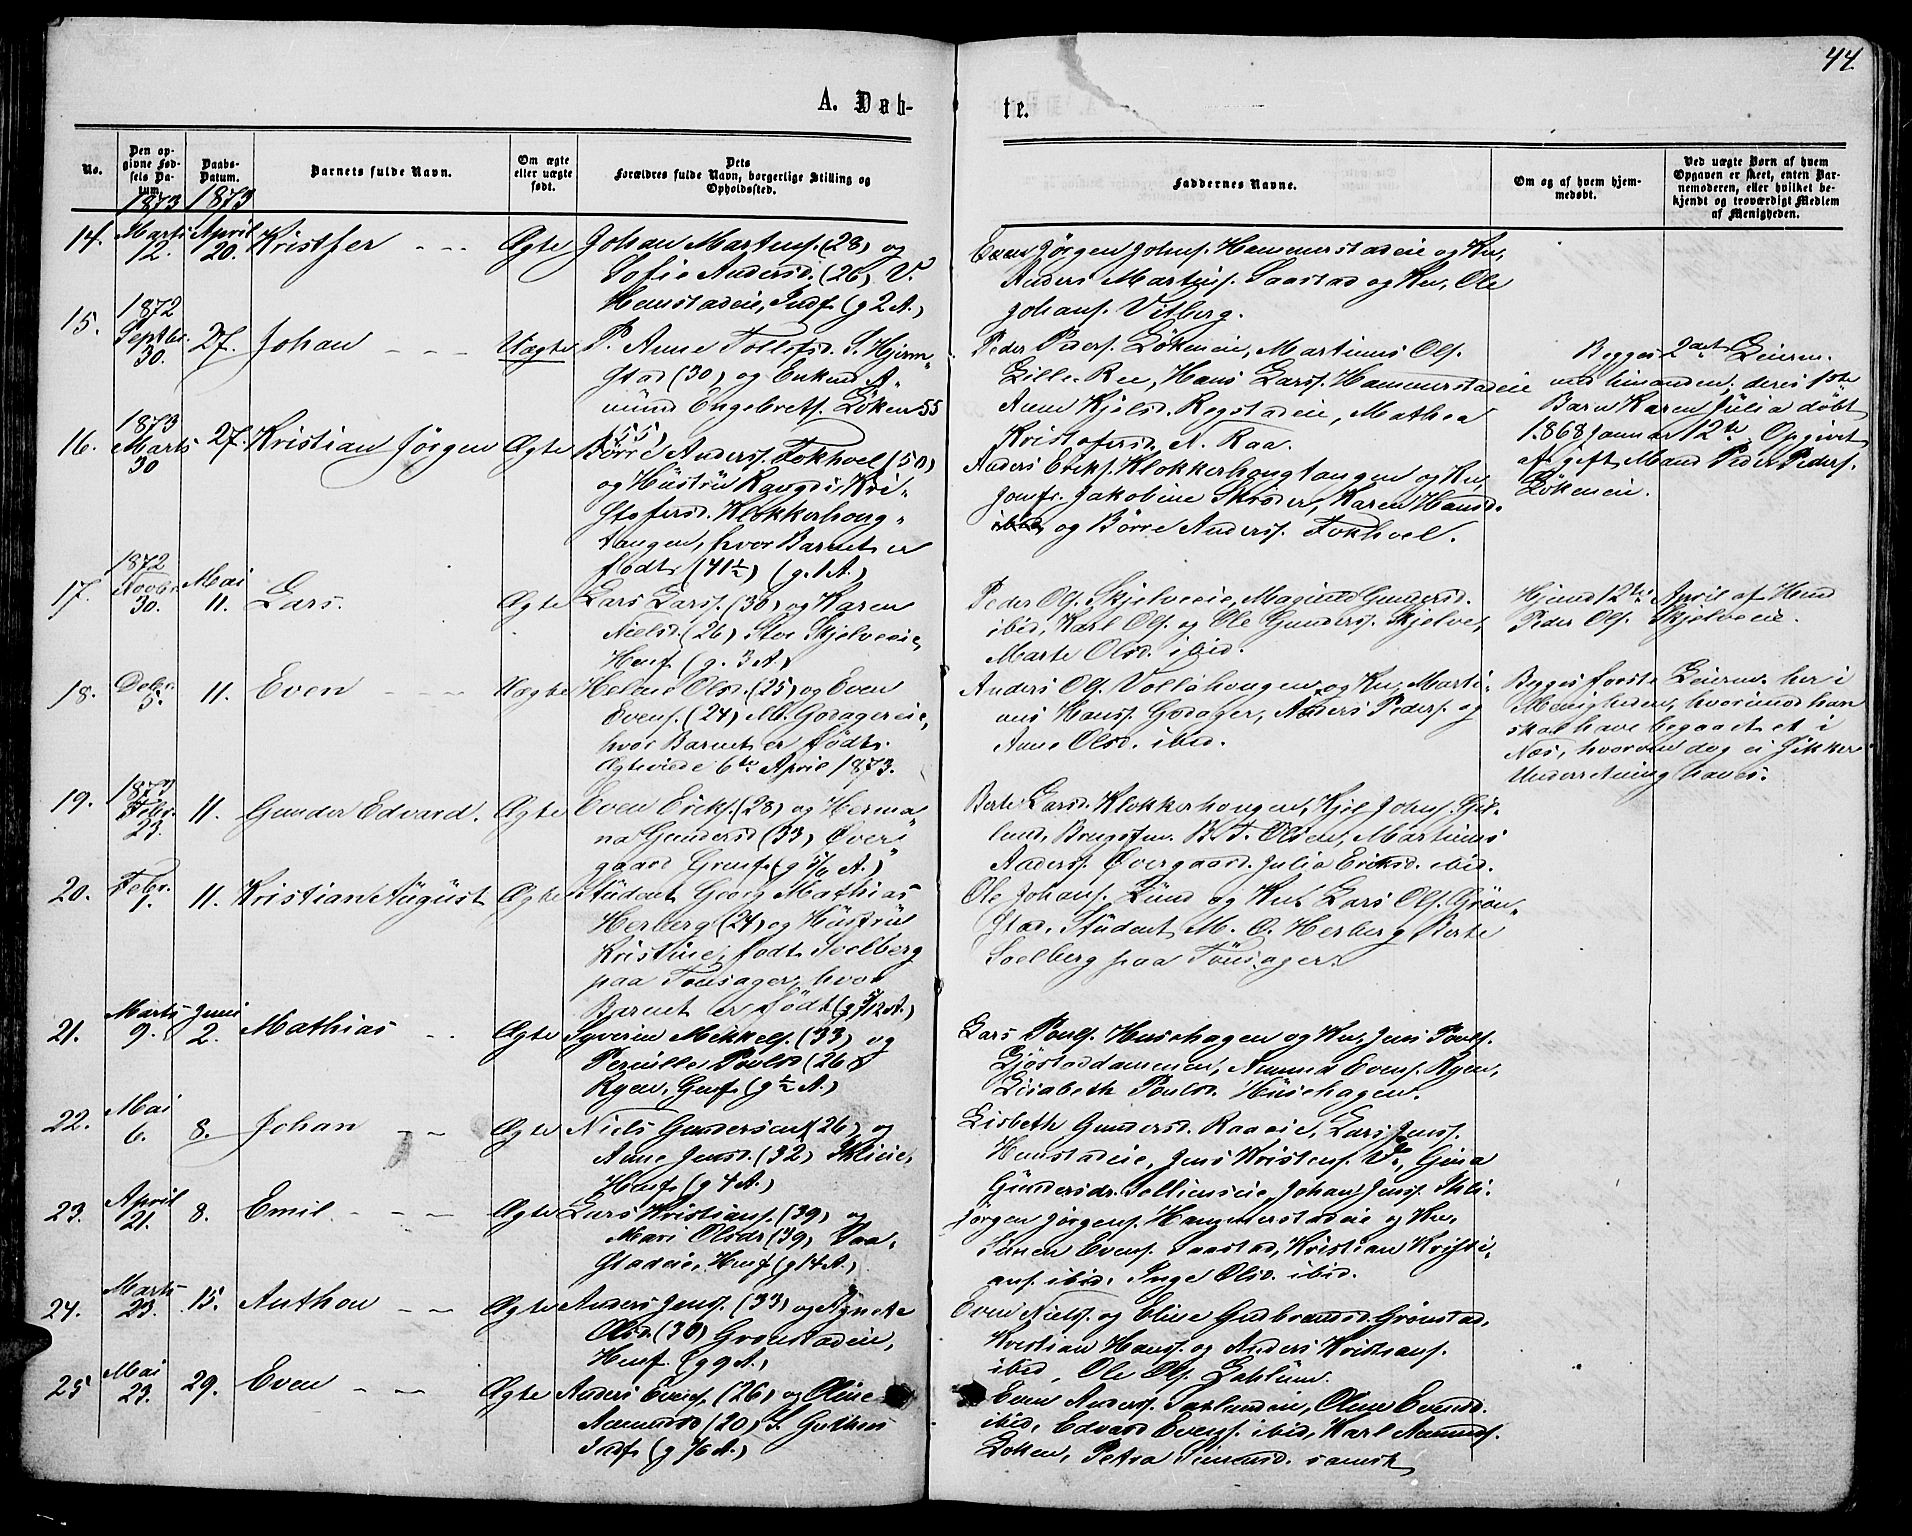 44
A. Døb-
te.
No.
Den op-
givne Fød-
sels Da-
tum.
1873
Daabs-
Datum.
1873
Barnets fulde Navn.
Om ægte
eller uægte
født.
Dets
Forældres fulde Navn, borgerlige Stilling og
Opholdssted.
Faddernes Navne.
Om og af hvem hjem-
medøbt.
Ved uægte Børn af hvem
Opgaven er skeet, enten Bar-
nemoderen, eller hvilket be-
kjendt og troværdigt Medlem
af Menigheden.
14.
Marts
12.
April
20.
Kristfer
Ægte
Johan Martins. (28) og
Sofie Andersd. (26) V.
Henstadeie, Indf (g 2 A.)
Jørgen Johns. Hammerstadeie og Ku,
Anders Martins. Saastad og Ku, Ole
Johans. Vilberg.
15.
1872
Septbr.
30.
27.
Johan
Uægte
P. Anne Tollefsd. S. Hjerm-
stad (30) og Enkem. A-
mund Engebrets. Løken 55
(55)
Peder Peders. Lökeneie, Martinus Ols.
Lille-Ree, Hans Larss. Hammerstadeie
Anne Kjelsd. Rogstadeie, Mathea
Kristofersd. N. Raa.
Begges 2det Leierm.
med hinanden; deres 1ste
Barn Karen Julia døbt
1868 Januar 12te Opgivet
af gift Mand Peder Peders.
Lökeneie.
16.
1873
Marts
30
27.
Kristian Jørgen
Ægte
Børre Anderss. Fokhvel (50)
og Hüstrü Rangdi Kri-
stofersd. Klokkerhoug-
tangen, hvor Barnet er
født (41½) (g. 1 A.)
Anders Eriks. Klokkerhougtangen og Ku,
Jomfr. Jakobine Skrøder, Karen Hansd.
ibid og Børre Anderss. Fokhvel.
17.
1872
Novbr.
30.
Mai
11.
Lars.
Ægte
Lars Larss. (30) og Karen
Nielsd. (26) Stor Skjelveeie,
Husf (g. 3 A.)
Peder Ols. Skjelveeie, Gundersd.
ibid, Karl Ols. og Ole Gunderss. Skjelve,
Marte Olsd. ibid.
Hjemd 12te April af Husd
Peder Ols. Skjelveeie.
18.
Debr.
5.
11.
Even
Uægte
Helene Olsd. (25) og Even
Evens. (24) M. Godagereie,
hvor Barnet er født.
Ægteviede 6te April 1873.
Anders Ols. Vollåhougen og Ku, Marti-
nus Hanss. Godager, Anders Peders. og
Anne Olsd. ibid.
Begges første Leierm. her i
Menigheden, hvorimod han
skal have begaaet et i
Nes, hvorom dog ei sikker
Underretning haves.
19.
1873
Febr.
23.
11.
Gunder Edvard.
Ægte
Even Eriks. (28) og Herma-
na Gundersd (33) Øver-
gaard Gruef (g 5/6 A.)
Berte Larsd. Klokkerhougen, Kjel Johns. Gis-
lund, Brugsfm. B. T. Olsen, Martinus
Anderss. Øvergaard. Julia Eriksd. ibid.
20.
Febr.
1.
11.
Kristian August
Ægte
Student Georg Mathias
Herberg (24) og Hüstrü
Kristine, født Soelberg
paa Tonsager, hvor
Barnet er født (g 5/12 A.)
Ole Johans. Lund og Ku. Lars Ols. Grøn-
stad, Student M. O. Herberg Berte
Soelberg paa Tönsager.
21.
Marts
9.
Juni
2.
Mathias
Ægte
Syverin Mikkels. (33) og
Pernille Poulsd (26)
Ryen, Gmf. (g ½ A.)
Lars Pouls. Husehagen og Ku, Jens Pouls.
Gjøstaddammen, Amund Evens. Ryen,
Lisabeth Poulsd. Hüsehagen.
22.
Mai
6.
8.
Johan
Ægte
Niels Gundersen (26) og
Anne Jensd. (32) Skieie,
Husf (g 4 A.)
Lisbeth Gundersd. Raaeie, Lars Jenss.
Henstadeie, Jens Kristens. V., Gina
Gundersdr. , Johan Jenss. Ski-
23.
April
21.
8.
Emil
Ægte
Lars Kristians. (39) og
Mari Olsdr (39) Saa-
stadeie, Husf (g 14 A.)
Jørgen Jørgens. Hammerstadeie og Ku.
Simen Evens. Saastad, Kristian Kristi-
ans. ibid. Inge Olsd. ibid.
24.
Marts
23.
15.
Anthon
Ægte
Anders Jenss. (33) og Agnete
Olsd. (30) Grønstadeie,
Husf. (g 9 A.)
Even Niels. og Eline Gudbrandsd. Grønstad,
Kristian Hanss. og Anders Kristians.
ibid, Ole Ols. Lahlum.
25
Mai
23.
29.
Even
Ægte
Anders Evens. (26) og Oline
Amundsd (20) S. Guthus
Indf (g 1/6 A.)
Even Anderss. , Oline Evensd.
ibid, Edvard Evens. ibid, Karl Amunds.
Løken, Petra Simensd. samst